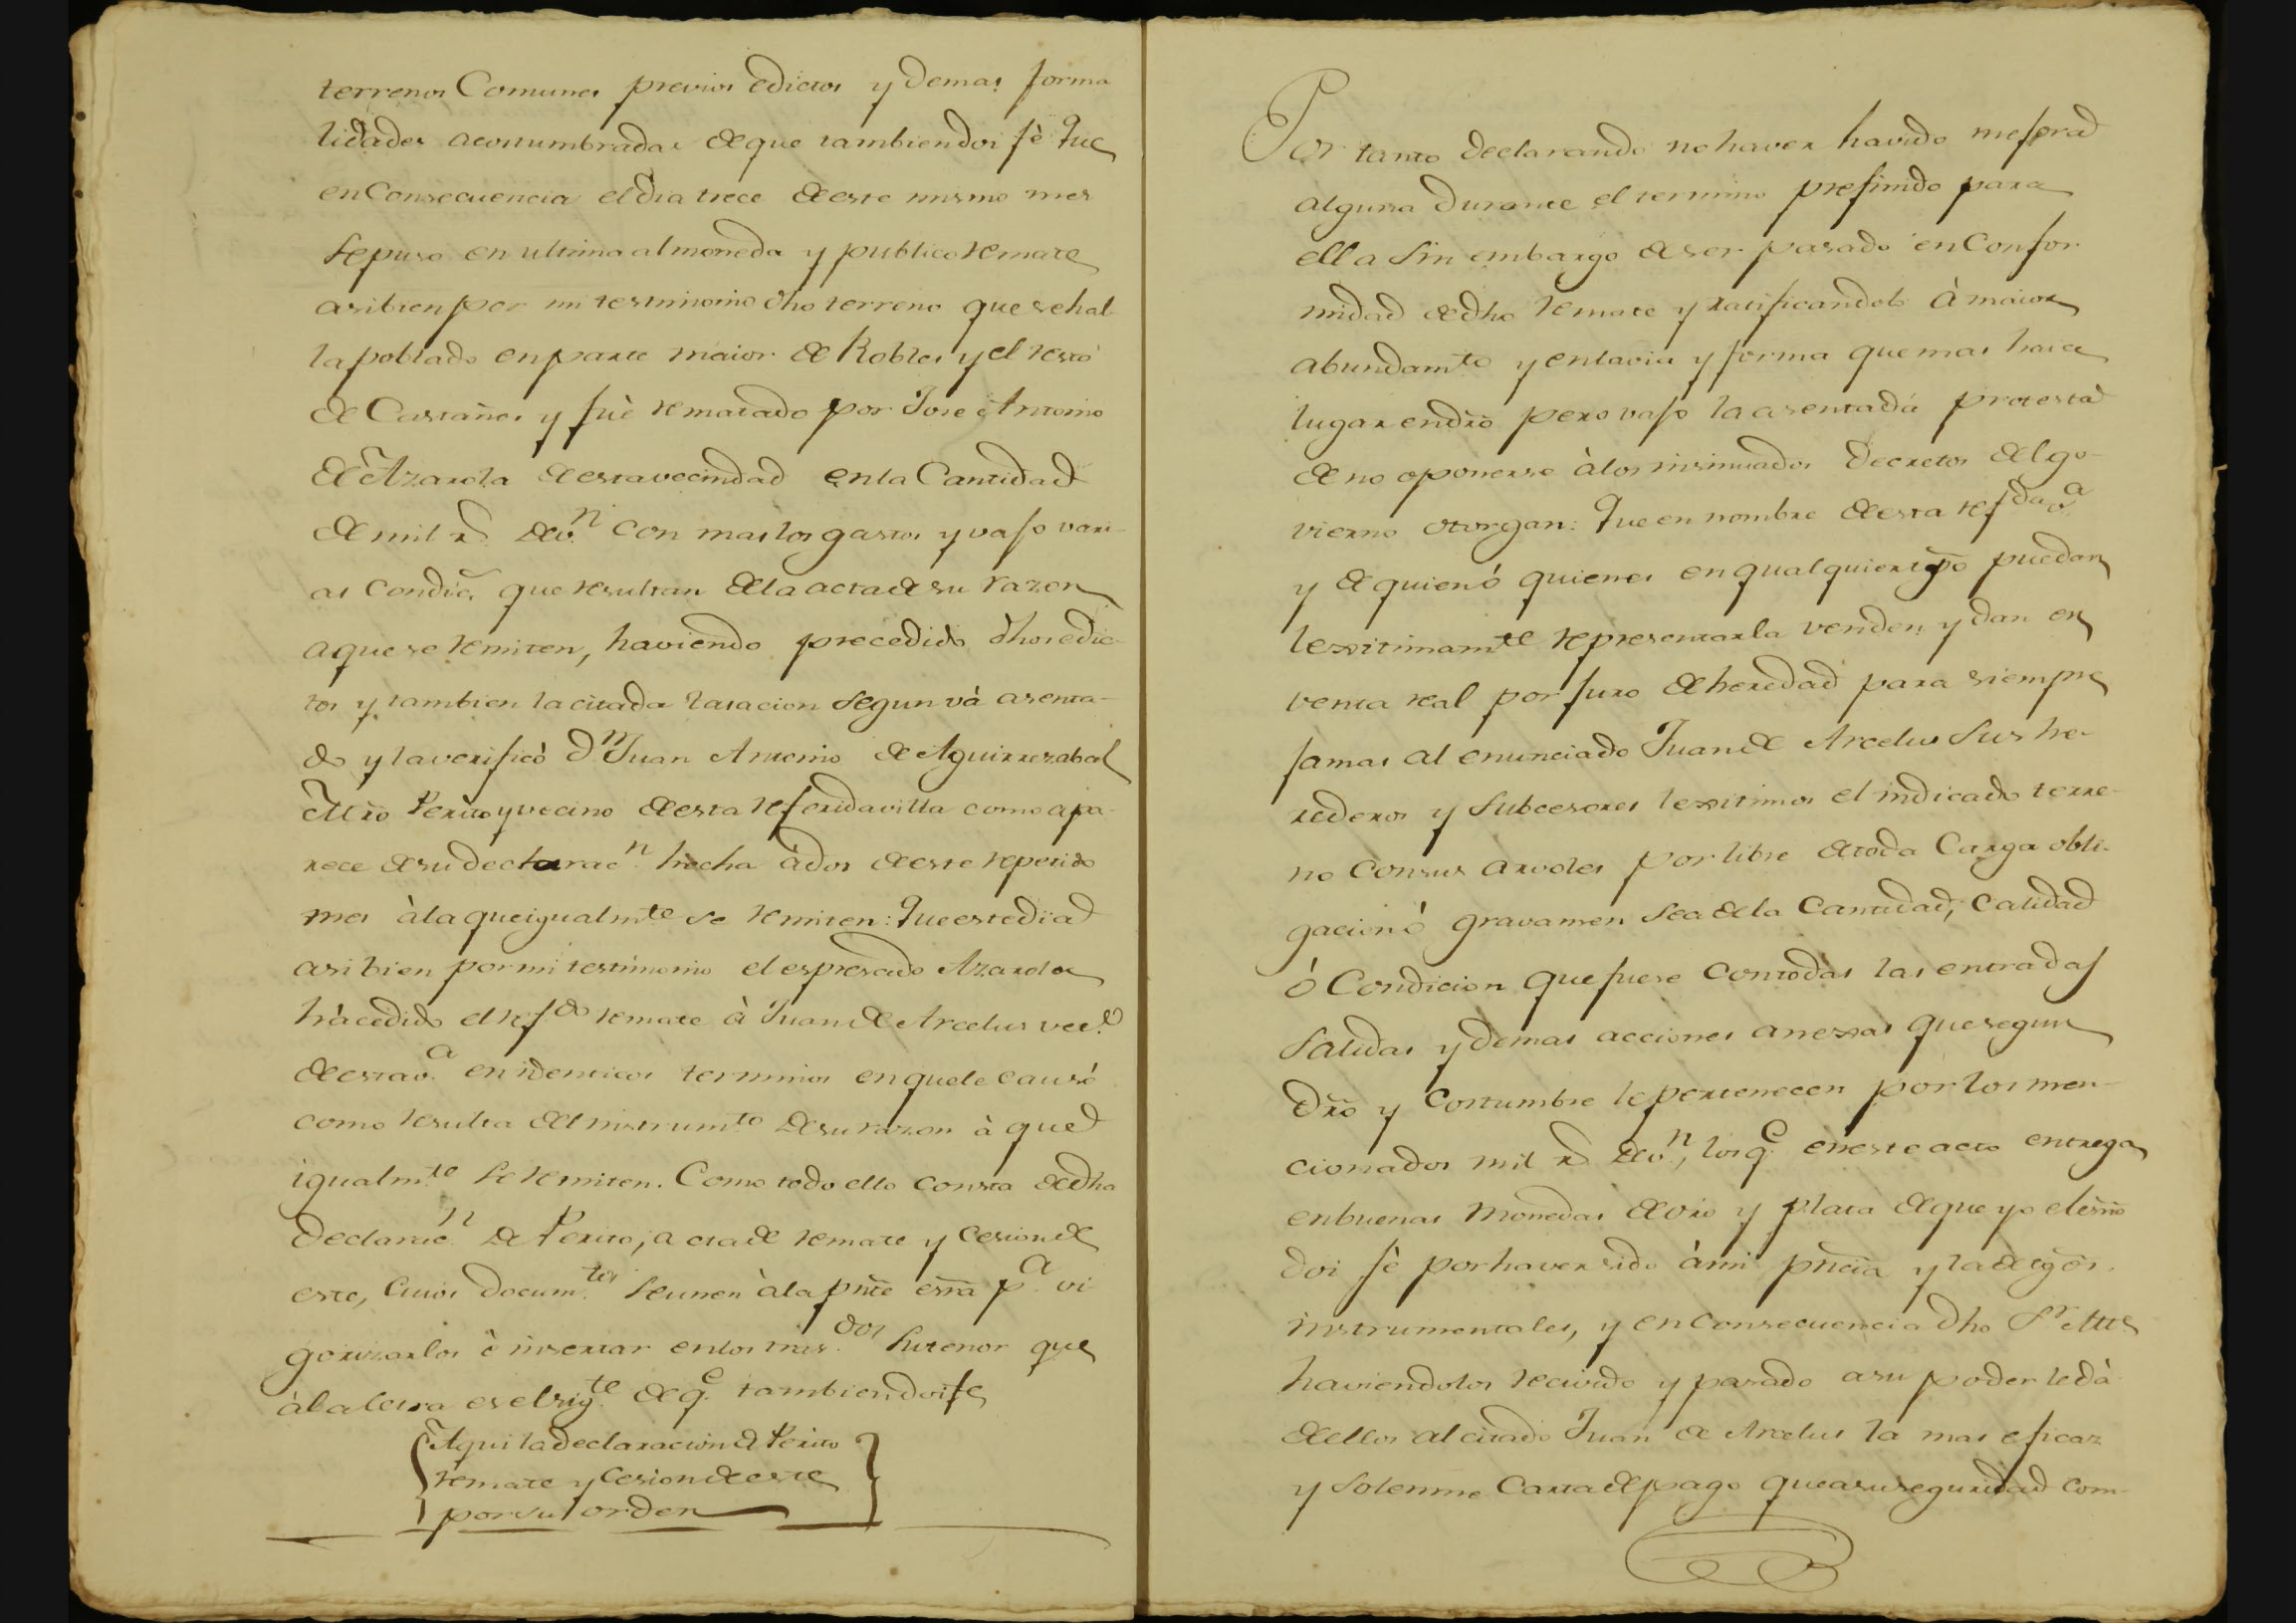 terrenos Comunes previos edictos y demas forma
lidades acostumbradas de que tambien doi fè Que
en Consecuencia el dia trece de este mismo mes
se puso en ultima almoneda y publico remate
asi bien por mi testimonio dho terreno que se hal
la poblado en parte maior de Robles y el resto
de Castaños y fuè rematado por Jose Antonio
de Azarola de esta vecindad en la Cantidad
de mil rs. de vn con mas los gastos y vajo vari-
as condics. que resultan de la acta de su razon
a que se remiten, haviendo precedido dhos edic-
tos y tambien la citada tasacion segun và asenta-
do y la verificò Dn Juan Antonio de Aguirrezabal
Mro Perito y vecino de esta referida villa como apa-
rece de su declaracn. hecha à dos de este repetido
mes à la que igualmte se remiten: Que este dia
asi bien por mi testimonio el espresado Azarola
hà cedido el refdo remate à Juan de Arcelus veco.
de esta va. en identicos terminos en que le causó
como resulta del instrumto de su razon à que
igualmte. se remiten. Como todo ello consta de dha
declaracn. de Perito, acta de remate y cesion de
este, cuios documtos. se unen à la pnte esra pa. vi
gorizarlos è insertar en los trasdos. su tenor que
à la letra es el sigte. de qe. tambien doi fe
Aqui la declaracion de Perito
remate y Cesion de este
por su orden
Por tanto declarando no haver havido mejora
alguna durante el termino prefinido para
ella sin embargo de ser pasado en Confor
midad de dho remate y ratificandolo à maior
abundamto y en la via y forma que mas haia
lugar en dro pero vajo la asentada protesta
de no oponerse à los insinuados Decretos del go-
vierno otorgan: Que en nombre de esta refda va.
y de quien ó quienes en qualquier tpo puedan
lexitimamte representarla venden y dan en
venta real por juro de heredad para siempre
jamas al enunciado Juan de Arcelus sus he-
rederos y subcesores lexitimos el indicado terre-
no con sus arvoles por libre de toda Carga obli-
gacion ó gravamen sea de la Cantidad, Calidad
ó Condicion que fuere con todas las entradas
salidas y demas acciones anexas que segun
dro y costumbre le pertenecen por los men-
cionados mil rs de vn., los qe. en este acto entrega
en buenas monedas de oro y plata de que yo el esno
doi fè por haver sido à mi pncia y la de tgos.
instrumentales, y en consecuencia dho Sr Alle
haviendolos recivido y pasado a su poder le dà
de ellos al citado Juan de Arcelus la mas eficaz
y solemne Carta de pago que a su seguridad com-